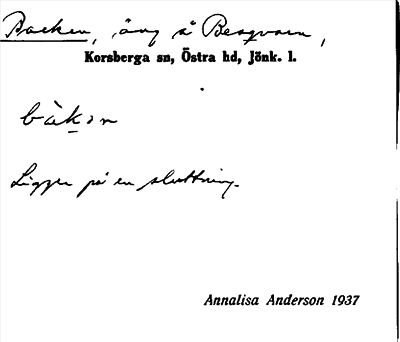 Backen, äng å Bergvarn,
Korsberga sn, Östra hd, Jönk. l.
bàkən
Ligger på en sluttning.
Annalisa Anderson 1937